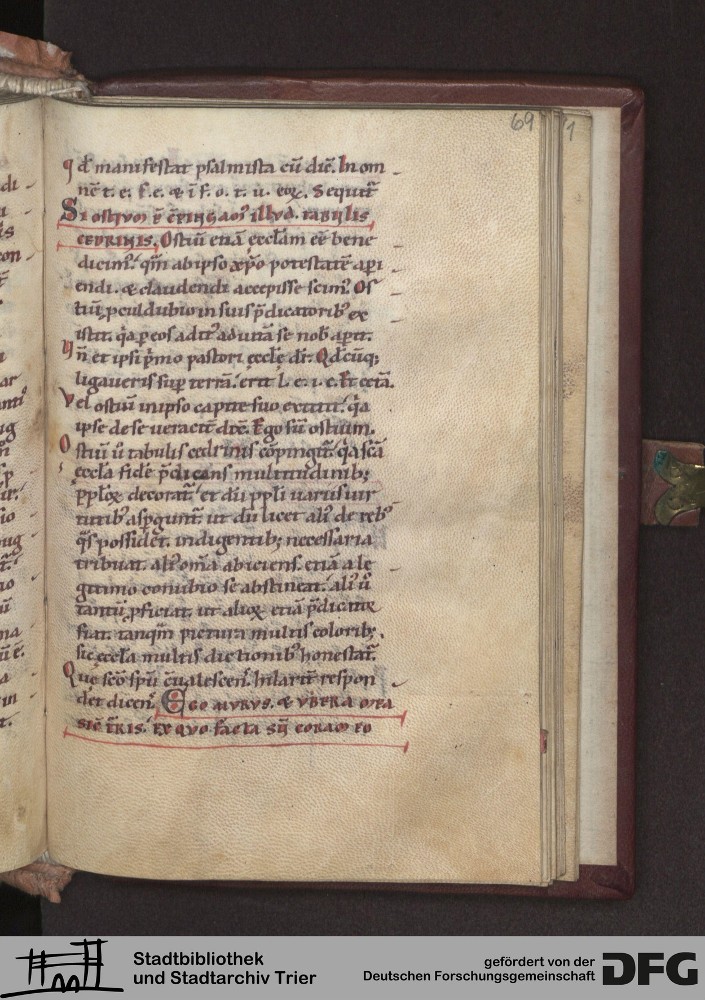 69
1
qd̄ manifestat psalmista cū dīc. In om
nē t. e. f. e. & ī f. o. t. ū. eoꝝ. Sequit̄
Si ostium ē c̄pingam' illud. tabulis
cedrinis. Ostiū etiā eccl̄am eē bene
dicim'. qm̄ ab ipso xp̄o potestatē apꝑi
endi. & claudendi accepisse scim'. Os
tiū ꝓculdubio in suis p̄dicatorib' ex
istit. q̄a ꝑ eos adit' ad uitā se nob̄ apit.
Un̄ et ipsi p̄mo pastori eccl̄e dr̄. Qd̄cūq;
ligaueris suꝑ terrā. erit l. e. i. c. Et cetā.
Vel ostiū in ipso capite suo extitit. q̄a
ipse de se ueracit̄ dīc. Ego sū ostium.
Ostiū ū tabulis cedrinis cōpingit̄. q̄a sc̄ā
eccl̄a fidē p̄dicans multitudinib;
ppl̄oꝝ decorat̄. et dū ppl̄i uariis uir
tutib' aspgunt̄. ut dū licet ali' de reb'
q̄s possidet. indigentib; necessaria
tribuat. ali' om̄ia abiciens. etiā a le
gitimo conubio se abstineat. ali' ū
tantū ꝓficiat. ut alioꝝ etiā p̄dicator
fiat. tanqm̄ pictura multis colorib;.
sic eccl̄a multis dictionib' honestat̄.
Que sc̄o sp̄u c̄ualescen̄. hilarit̄ respon
det dicen̄. Ego murus. & ubera mea
sic t̄ris. Ex quo facta sū coram eo
Stadtbibliothek
und Stadtarchiv Trier
gefördert von der
Deutschen Forschungsgemeinschaft
DFG